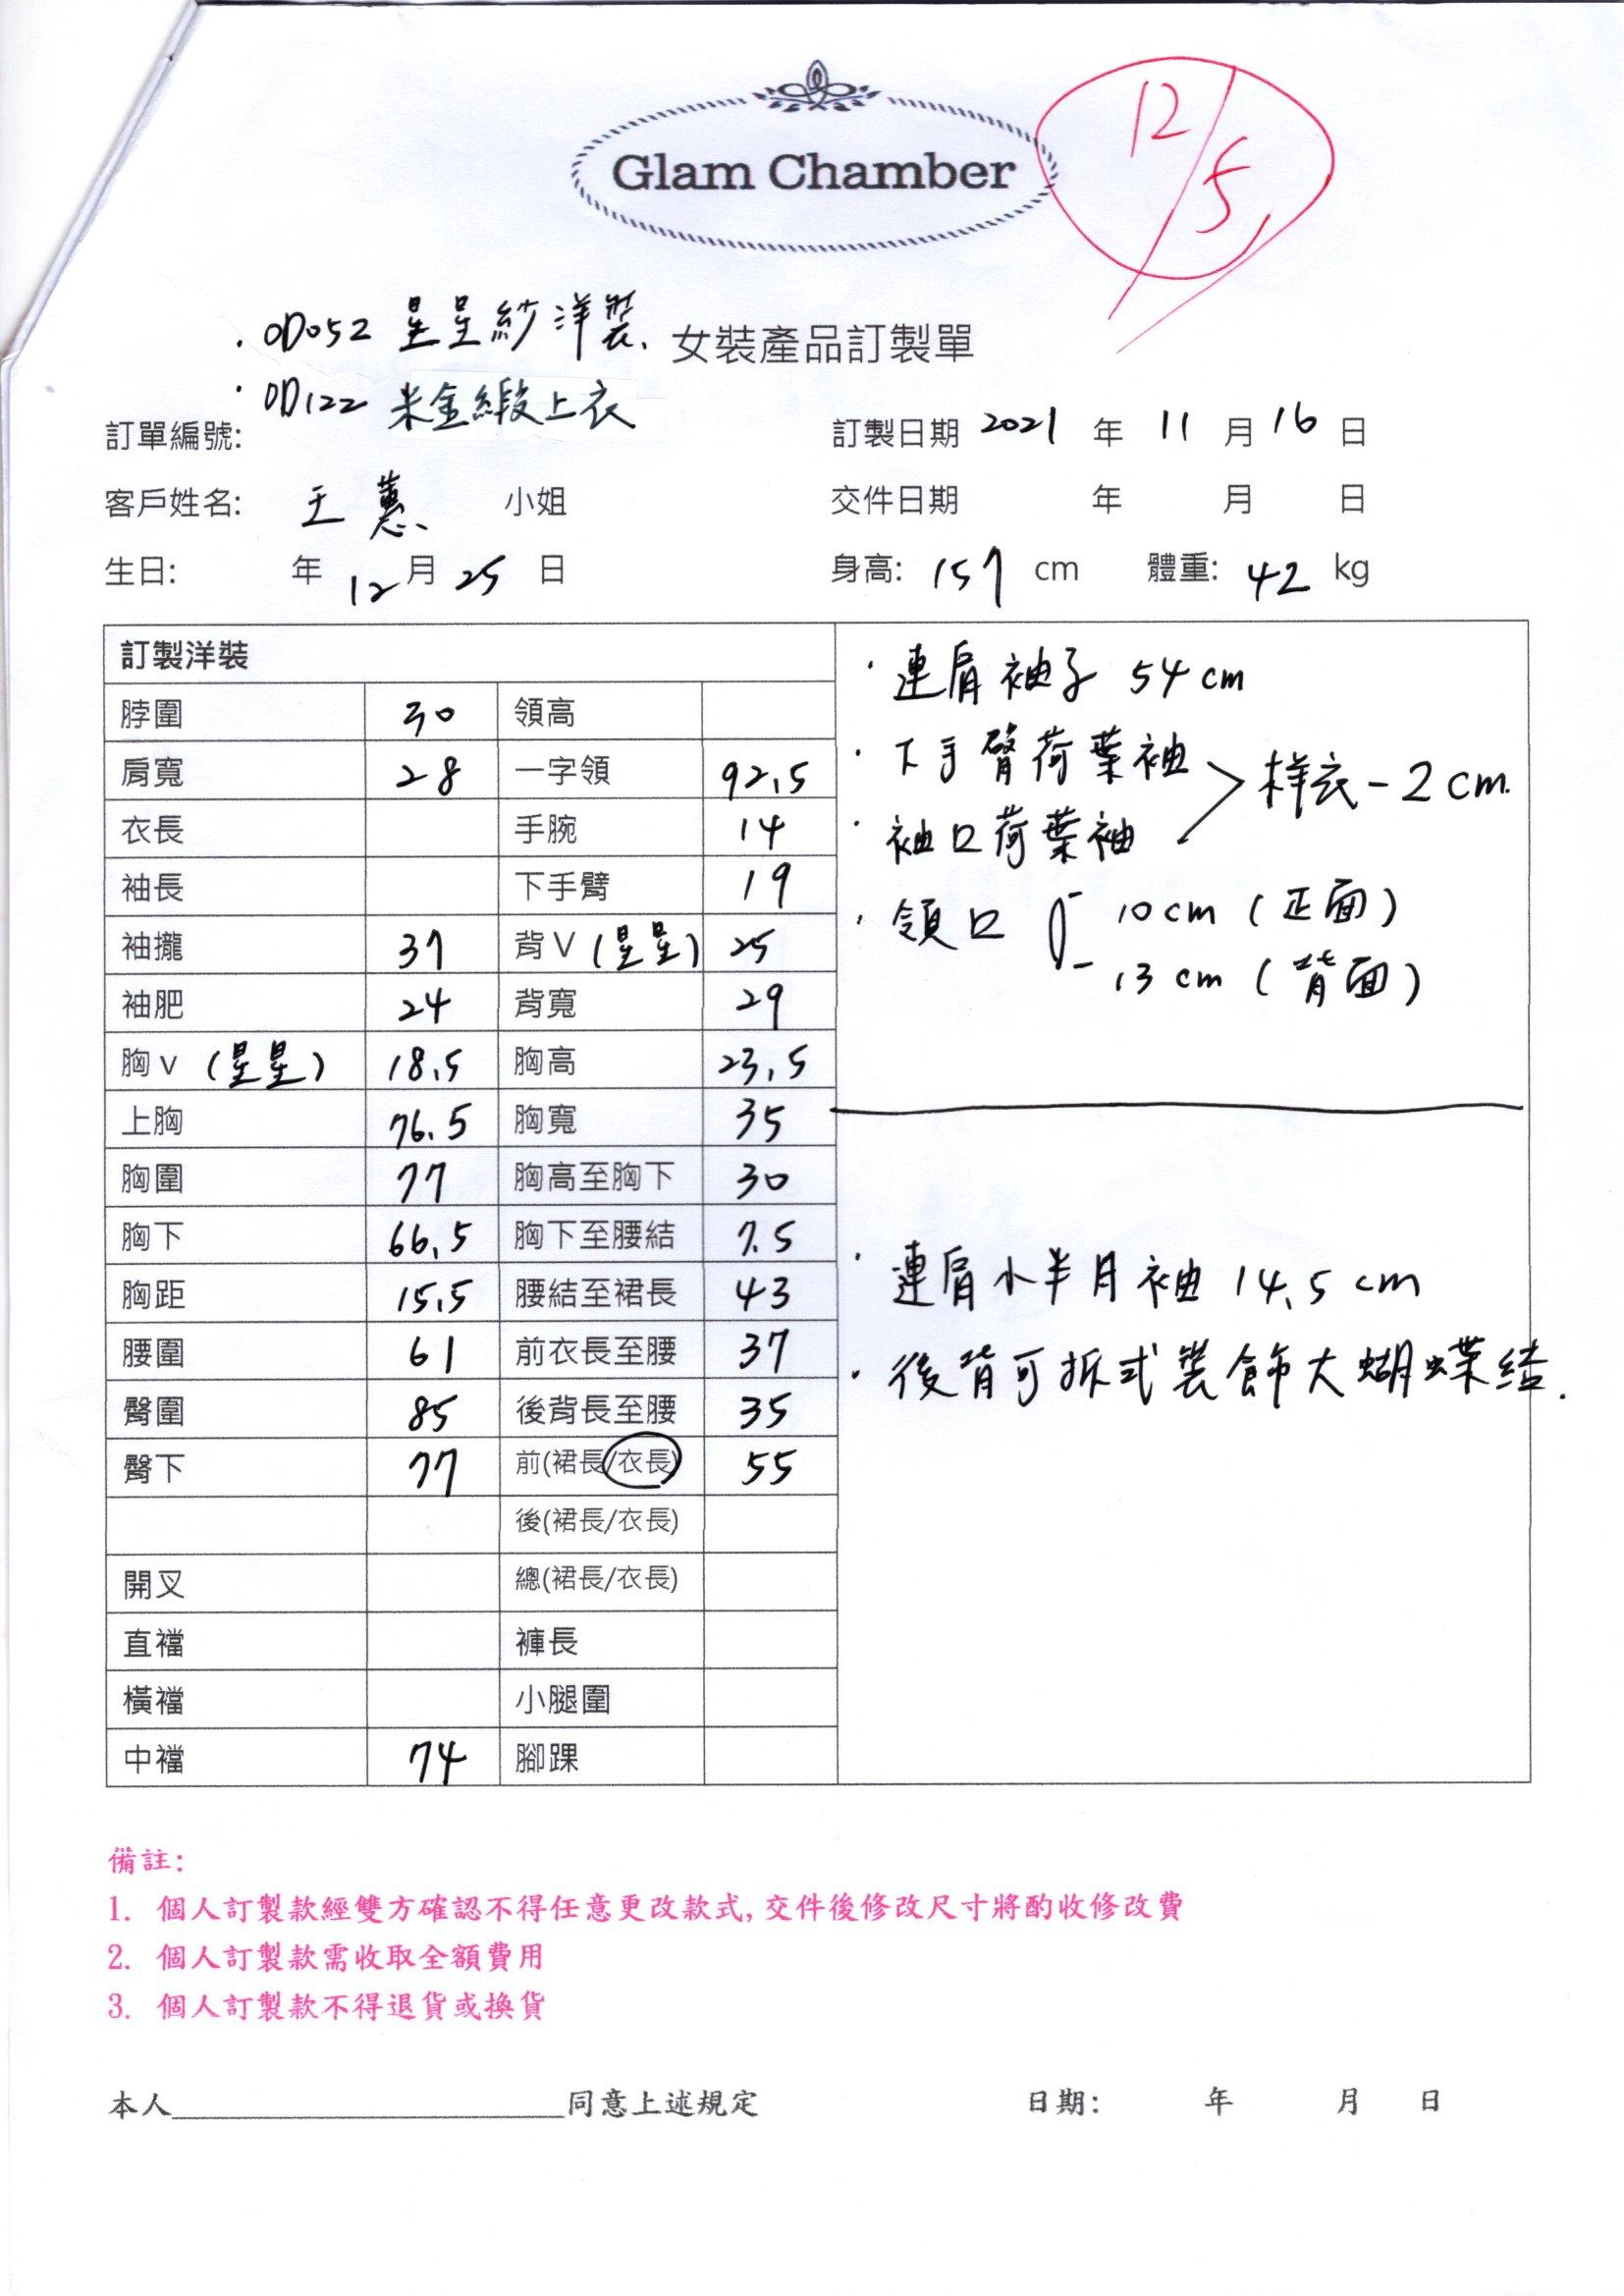 Glam Chamber
12/5
· OD052 星星紗洋裝、
女裝產品訂製單
· OD122 米金緞上衣
訂單編號: 訂製日期 2021 年 11 月 16 日
客戶姓名: 王蕙、 小姐 交件日期 年 月 日
生日: 年 12 月 25 日 身高: 157 cm 體重: 42 kg
訂製洋裝
脖圍 30 領高
肩寬 28 一字領 92.5
衣長 手腕 14
袖長 下手臂 19
袖攏 37 背V (星星) 25
袖肥 24 背寬 29
胸v (星星) 18.5 胸高 23.5
上胸 76.5 胸寬 35
胸圍 77 胸高至胸下 30
胸下 66.5 胸下至腰結 7.5
胸距 15.5 腰結至裙長 43
腰圍 61 前衣長至腰 37
臀圍 85 後背長至腰 35
臀下 77 前(裙長/衣長) 55
後(裙長/衣長)
開叉 總(裙長/衣長)
直襠 褲長
橫襠 小腿圍
中襠 74 腳踝
· 連肩袖子 54cm
· 下手臂荷葉袖
· 袖口荷葉袖
样衣-2cm.
· 領口 10cm (正面)
13cm (背面)
· 連肩小半月袖 14.5cm
· 後背可拆式裝飾大蝴蝶结.
備註:
1. 個人訂製款經雙方確認不得任意更改款式,交件後修改尺寸將酌收修改費
2. 個人訂製款需收取全額費用
3. 個人訂製款不得退貨或換貨
本人____________________同意上述規定 日期: 年 月 日